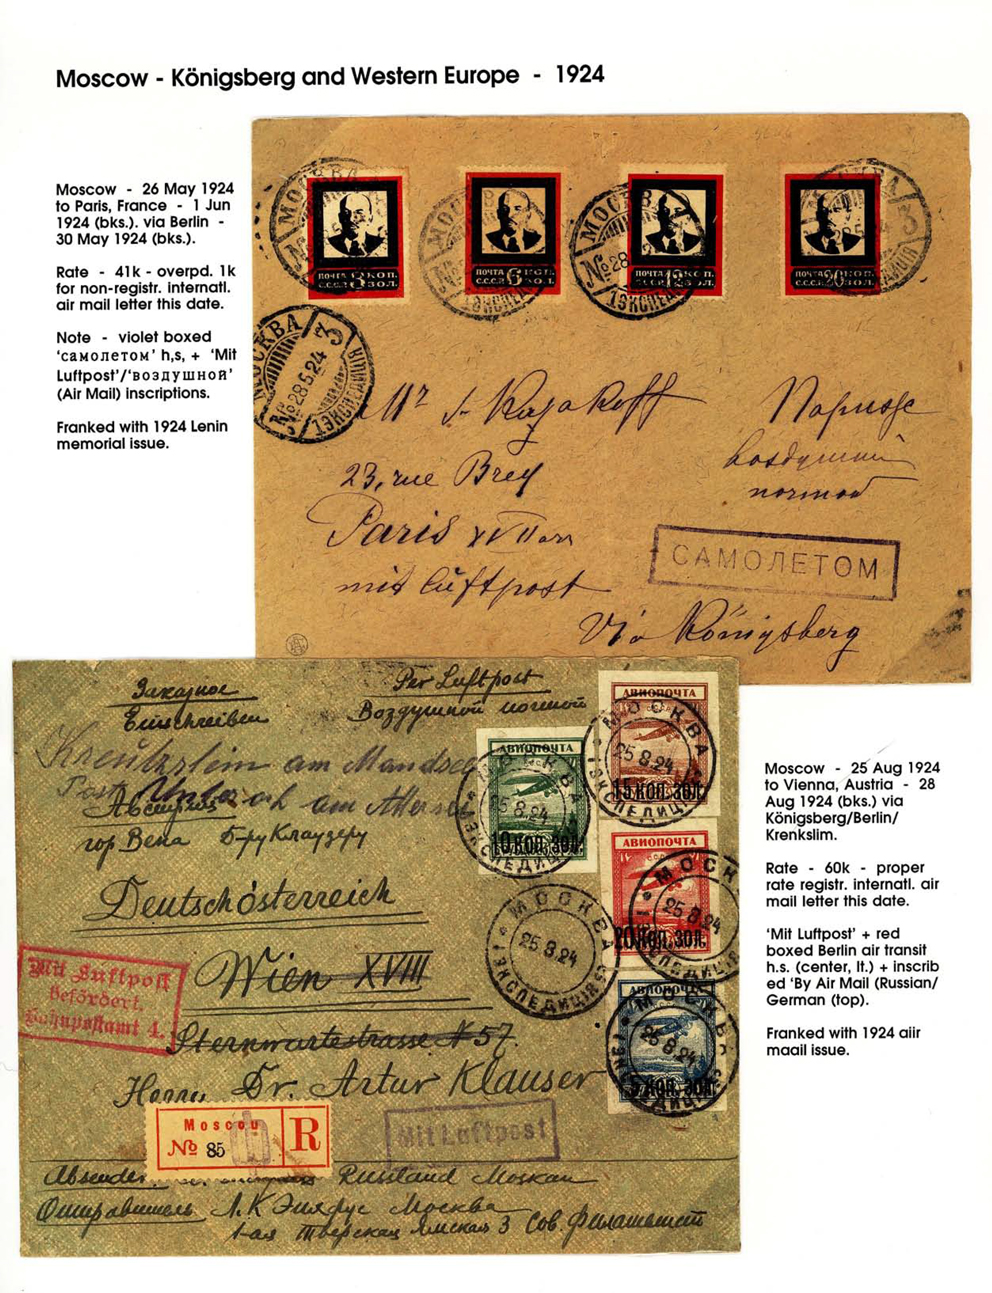 Moscow - Königsberg and Western Europe - 1924
Moscow - 26 May 1924
to Paris, France - 1 Jun
1924 (bks.). via Berlin -
30 May 1924 (bks.).
Rate - 41k - overpd. 1k
for non-registr. internatl.
air mail letter this date.
Note - violet boxed
'самолетом' h,s, + 'Mit
Luftpost'/'воздушной'
(Air Mail) inscriptions.
Franked with 1924 Lenin
memorial issue.
МОСКВА
ПОЧТА 3 КОП.
С.С.С.Р. ЗОЛ.
МОСКВА
ПОЧТА 6 КОП.
С.С.С.Р. ЗОЛ.
1ЭКСПЕД
МОСКВА
№28
ПОЧТА 12 КОП.
С.С.С.Р. ЗОЛ.
1ЭКСПЕД
ПОЧТА 20 КОП.
С.С.С.Р. ЗОЛ.
3
МОСКВА 3
№28.5.24
1ЭКСПЕДИЦІЯ
Mr
23, rue Brey
Paris XVII arr
mit Luftpost
Via Königsberg
САМОЛЕТОМ
Заказное
Einschreiben
Per Luftpost
Воздушной почтой
am Mondsee
Post am Attersee
Австрия
гор Вена Б-ру Клаузеру
Deutschösterreich
Wien XVIII
Sternwartestrasse № 57.
Herrn Dr. Artur Klauser
Mit Luftpost
befördert.
Bahnpostamt 4.
Moscou
№ 85
R
Mit Luftpost
Absender Russland Moskau
Отправитель Л.К Москва
1-ая Тверская Ямская 3 Сов.
АВИОПОЧТА
10 КОП. ЗОЛ.
МОСКВА
25.8.24
1 ЭКСПЕДИЦІЯ
АВИОПОЧТА
15 КОП. ЗОЛ.
МОСКВА
25 8.24
1 ЭКСПЕДИЦІЯ
АВИОПОЧТА
20 КОП. ЗОЛ.
МОСКВА
25 8 24
МОСКВА
25.8.24
1 ЭКСПЕДИЦІЯ
АВИОПОЧТА
5 КОП. ЗОЛ.
МОСКВА
25 8.24
1 ЭКСПЕДИЦІЯ
Moscow - 25 Aug 1924
to Vienna, Austria - 28
Aug 1924 (bks.) via
Königsberg/Berlin/
Krenkslim.
Rate - 60k - proper
rate registr. internatl. air
mail letter this date.
'Mit Luftpost' + red
boxed Berlin air transit
h.s. (center, lt.) + inscrib
ed 'By Air Mail (Russian/
German (top).
Franked with 1924 aiir
maail issue.